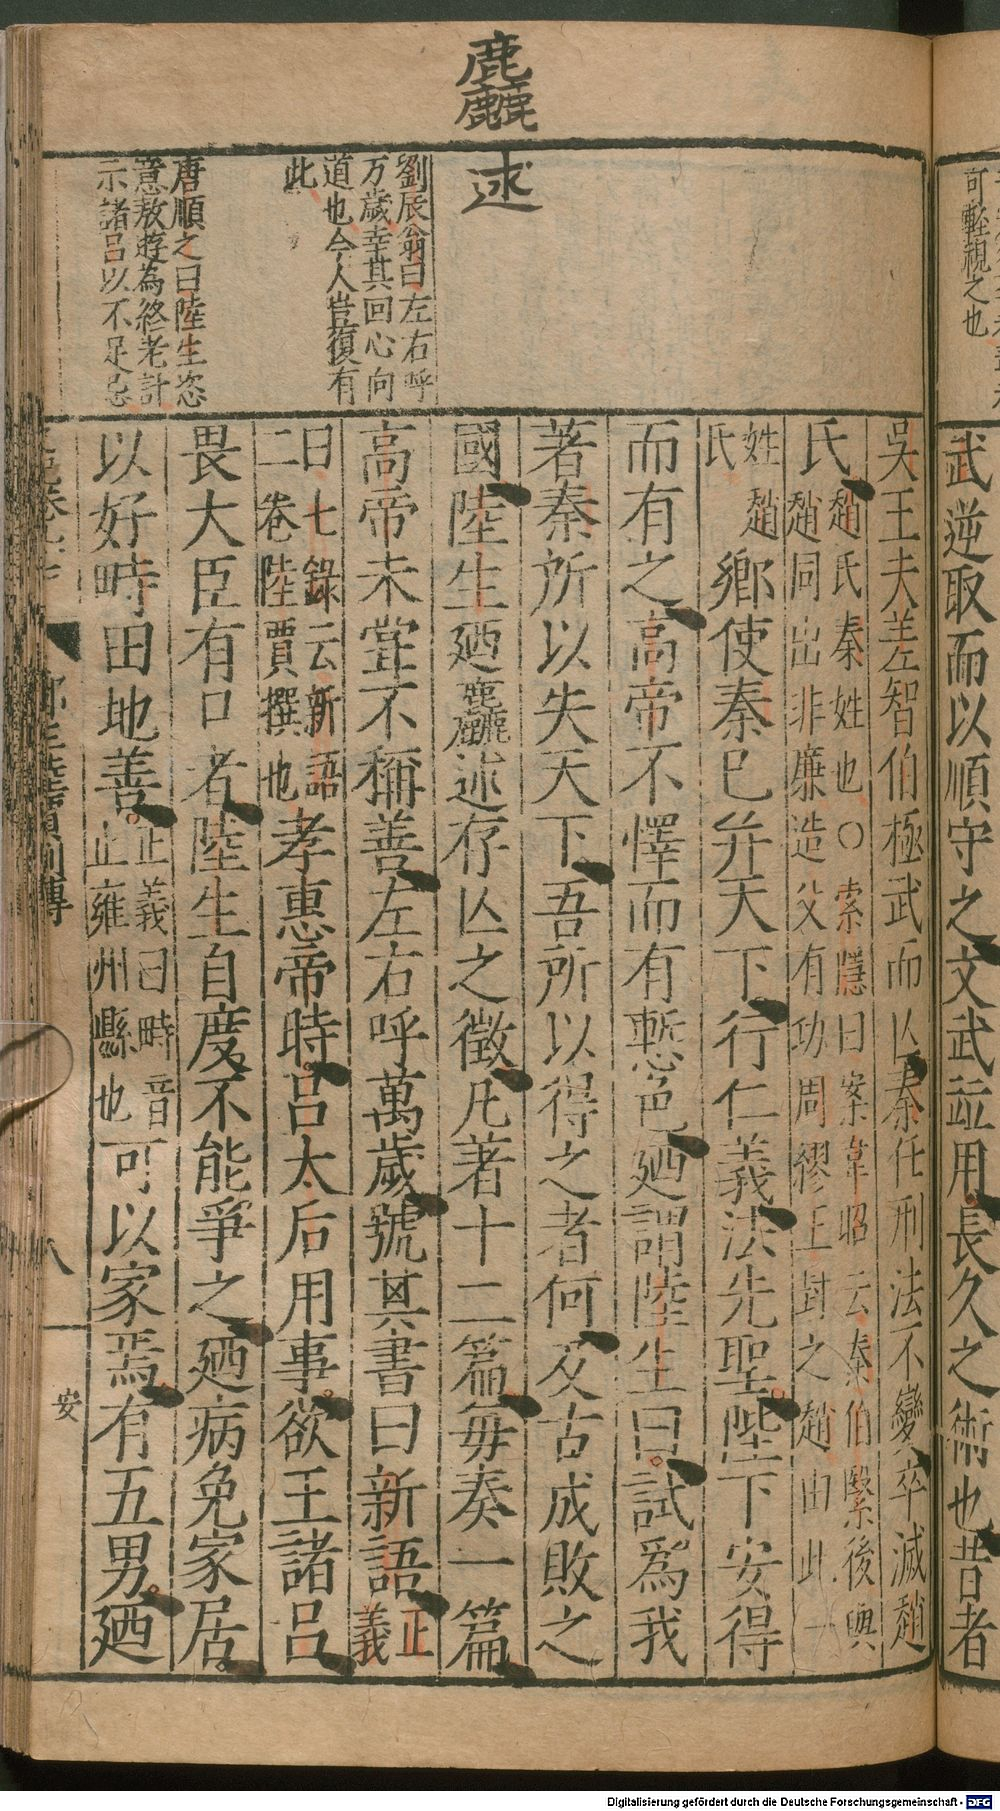 可輕視之也
武逆取而以順守之文武並用長久之術也昔者
麤
述
劉辰翁曰左右呼
万歲幸其回心向
道也今人豈復有
此
唐順之曰陸生恣
意敖遊為終老計
示諸呂以不足忌
吳王夫差智伯極武而亾秦任刑法不變卒滅趙
氏趙氏秦姓也○索隱曰案韋昭云秦伯翳後與
趙同出非廉造父有功周繆王封之趙由此一
姓趙
氏鄉使秦已并天下行仁義法先聖陛下安得
而有之高帝不懌而有慙色廼謂陸生曰試爲我
著秦所以失天下吾所以得之者何及古成敗之
國陸生廼麤述存亾之徵凡著十二篇毎奏一篇
高帝未甞不稱善左右呼萬歲號其書曰新語正
義
曰七錄云新語
二卷陸賈撰也孝惠帝時呂太后用事欲王諸呂
畏大臣有口者陸生自度不能爭之廼病免家居
以好畤田地善正義曰畤音
止雍州縣也可以家焉有五男廼
八
安
Digitalisierung gefördert durch die Deutsche Forschungsgemeinschaft - DFG